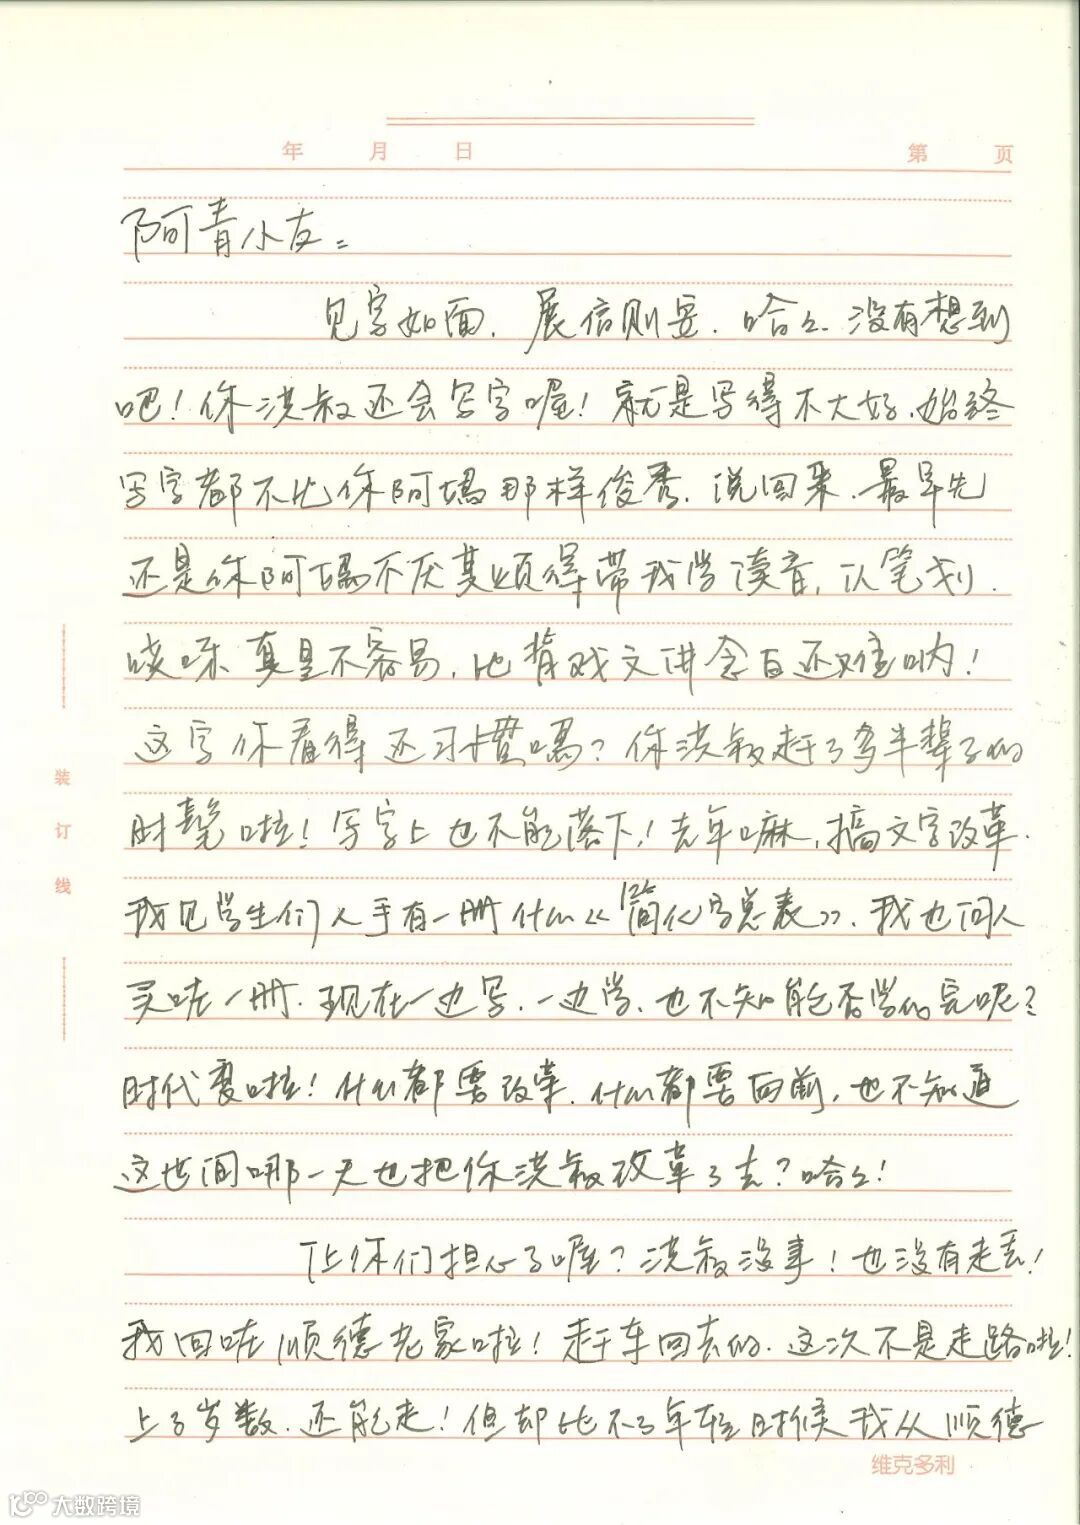 年 月 日 第 页
阿青小友：
见字如面，展信则安。哈哈，没有想到
吧！你洪叔还会写字喔！就是写得不大好，始终
写字都不比你阿妈那样俊秀。说回来，最早先
还是你阿妈不厌其烦得带我学读音，认笔划。
哎呀，真是不容易，比背戏文讲念白还难呐！
这字你看得还习惯吗？你洪叔赶了多半辈子的
时髦啦！写字上也不能落下！去年嘛，搞文字改革，
我见学生们人手有一册什么《简化字总表》，我也问人
买咗一册，现在一边写，一边学，也不知能否学的完呢？
时代变啦！什么都要改革，什么都要向前，也不知道
这世间哪一天也把你洪叔改革了去？哈哈！
让你们担心了喔？洪叔没事！也没有走丢！
我回咗顺德老家啦！赶车回去的，这次不是走路啦！
上了岁数，还能走！但却比不了年轻时候我从顺德
装订线
维克多利
大数跨境